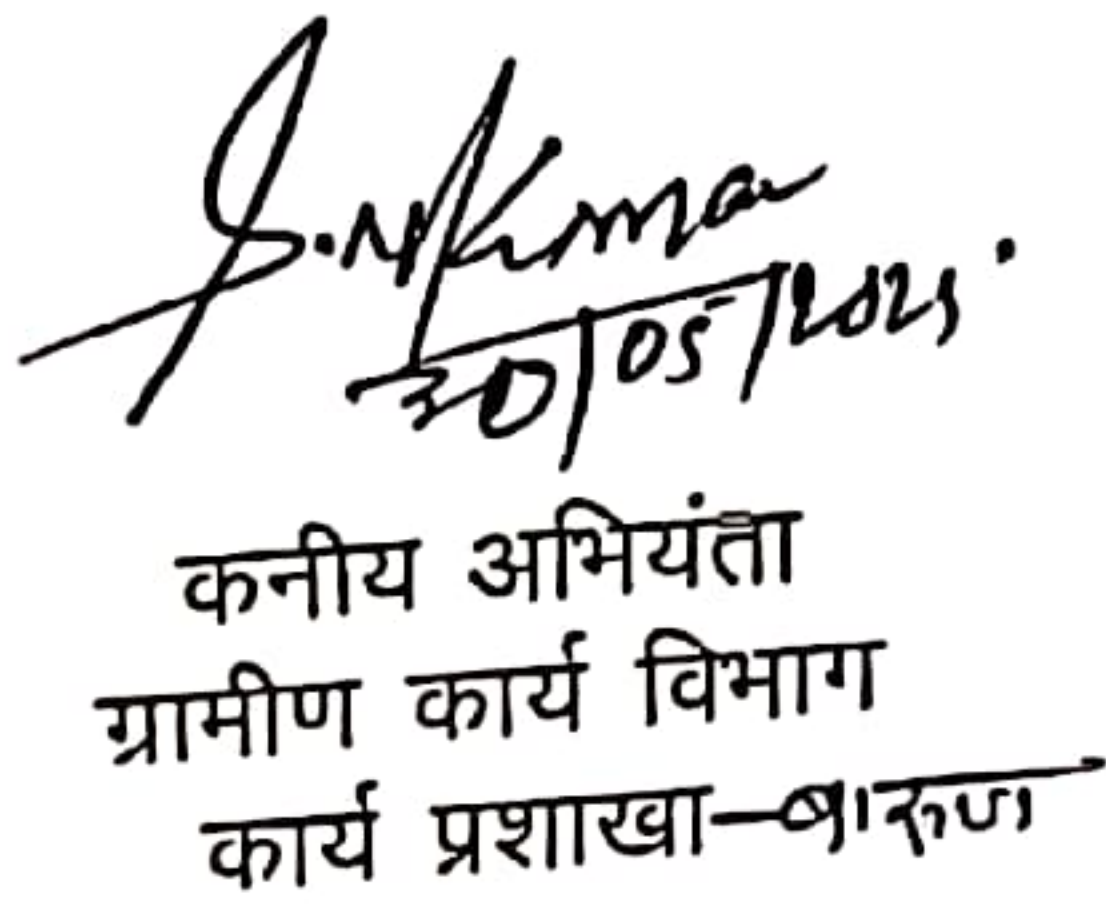 S.N Kumar
30/05/2021
कनीय अभियंता
ग्रामीण कार्य विभाग
कार्य प्रशाखा-बारुण